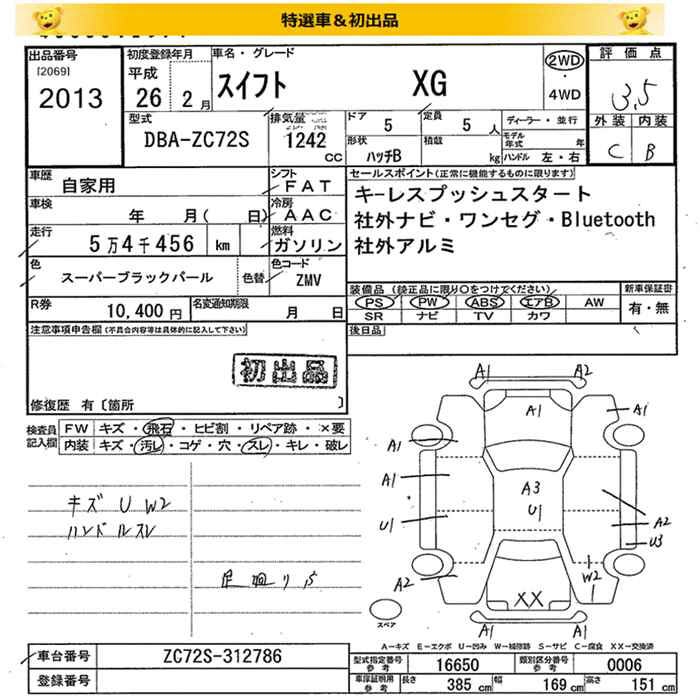 特選車&初出品
出品番号
[2069]
2013
初度登録年月
平成
26 2月
車名・グレード
スイフト XG
2WD
・
4WD
評価点
3.5
外装 内装
C B
型式
DBA-ZC72S
排気量
1242
CC
ドア
5
定員
5人
形状
ハッチB
積載
kg
ディーラー・並行
モデル
年式 年
ハンドル 左・右
車歴
自家用
シフト
FAT
車検
年 月( 日)
冷房
AAC
走行
5万4千456 km
燃料
ガソリン
色
スーパーブラックパール
色替
色コード
ZMV
R券
10,400円
名変通知期限
月 日
セールスポイント(正常に機能するものに限ります)
キーレスプッシュスタート
社外ナビ・ワンセグ・Bluetooth
社外アルミ
装備品(純正品に限り○をつけてください)
PS PW ABS エアB AW
SR ナビ TV カワ
新車保証書
有・無
後日品
注意事項申告欄(不具合内容等は具体的に記入して下さい)
初出品
修復歴 有〔箇所 〕
検査員
記入欄
FW キズ・飛石・ヒビ割・リペア跡・×要
内装 キズ・汚レ・コゲ・穴・スレ・キレ・破レ
キズ U W2
ハンドルスレ
足廻りサビ
A1 A2
A1 A1
A1
A1
A3
U1
U1
A2
U3
A2
W2
XX
スペア
A-キズ E-エクボ U-凹み W-補修跡 S-サビ C-腐食 XX-交換済
車台番号
ZC72S-312786
登録番号
型式指定番号
参考
16650
類別区分番号
参考
0006
車庫証明用
参考
長さ 385 cm 幅 169 cm 高さ 151 cm